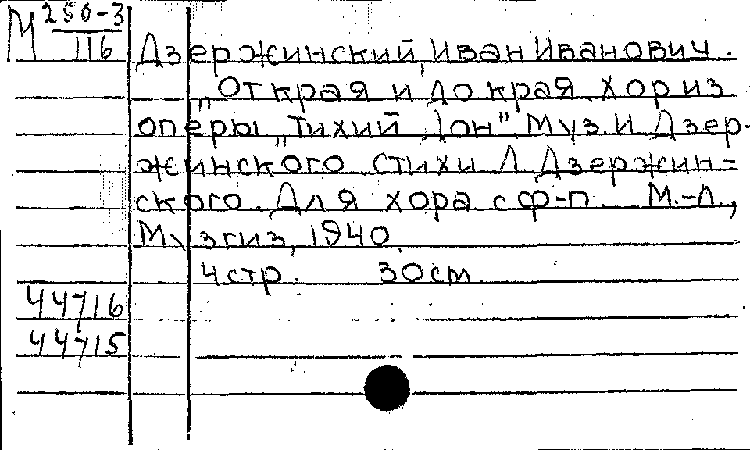 М 250-3
116
Дзержинский, Иван Иванович.
„От края и до края. Хор из
оперы „Тихий Дон" Муз. И. Дзер-
жинского стихи Л. Дзержин-
ского. Для хора с ф-п. М.-Л.,
Музгиз, 1940.
4 стр. 30 см.
44716
44715